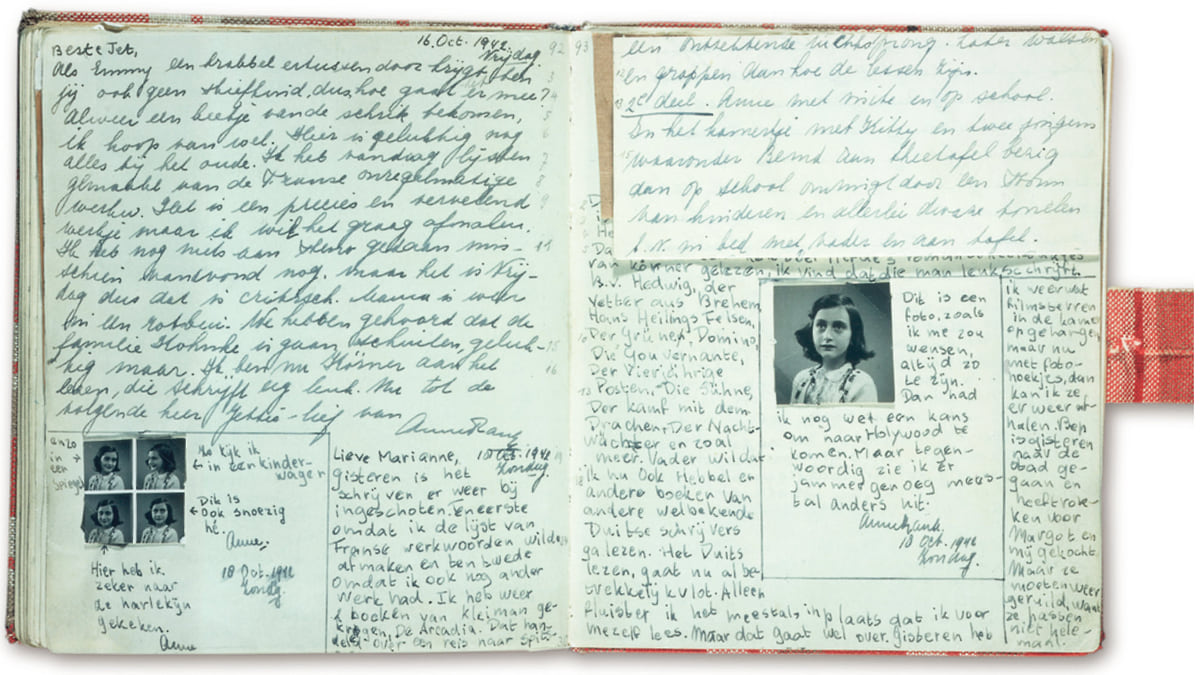 16. Oct. 1942.
Vrijdag.
92
Beste Jet,
Als Emmy een krabbel ertussen door krijgt, ben
jij ook geen stiefkind, dus hoe gaat er mee?
Alweer een beetje van de schrik bekomen,
ik hoop van wel. Hier is gelukkig nog
alles bij het oude. Ik heb vandaag lijsten
gemaakt van de Franse onregelmatige
werkw. Het is een precies en vervelend
werkje maar ik wil het graag afmaken.
Ik heb nog niets aan steno gedaan mis-
schien vanavond nog, maar het is Vrij-
dag dus dat is critisch. Mama is weer
in een
We hebben gehoord dat de
familie is gaan schuilen, geluk-
kig maar. Ik ben nu Körner aan het
lezen, die schrijft erg leuk. Nu tot de
volgende keer Jettje-lief van
Anne Frank
en zo
in
een
spiegel
Nu kijk ik
in een kinder-
wagen
Dit is
ook snoezig
hé.
Anne,
18 Oct. 1942
Zondag
Hier heb ik
zeker naar
de harlekijn
gekeken.
Anne
Lieve Marianne,
1942
Zondag.
Gisteren is het
schrijven er weer bij
ingeschoten. Ten eerste
omdat ik de lijst van
Franse werkwoorden wilde
afmaken en ten tweede
omdat ik ook nog ander
werk had. Ik heb weer
2 boeken van Kleiman ge-
kregen, De Arcadia. Dat han-
delt over een reis naar Spits-
93
een ontzettende luchtsprong. Later walsen
en grappen aan hoe de lessen zijn.
2e deel. Anne met visite en op school.
In het kamertje met Kitty en twee jongens
waaronder Bernd aan theetafel bezig
dan op school omringd door een stroom
van kinderen en allerlei dwaze tonelen
b.v. in bed met vader en aan tafel.
van Körner gelezen, ik vind dat die man leuk schrijft.
B.v. Hedwig, der
Vetter aus Bremen,
Hans Heilings Felsen,
Der Grüne, Domino,
Die Gouvernante,
Der Vierjährige
Posten, Die Sühne,
Der Kamf mit dem
Drachen, Der Nacht-
wächter en zoal
meer. Vader wil dat
ik nu ook Hebbel en
andere boeken van
andere welbekende
Duitse schrijvers
ga lezen. Het Duits
lezen, gaat nu al be-
trekkelijk vlot. Alleen
fluister ik het meestal in plaats dat ik voor
mezelf lees. Maar dat gaat wel over. Gisteren heb
Dit is een
foto, zoals
ik me zou
wensen,
altijd zo
te zijn.
Dan had
ik nog wel een kans
om naar Holywood te
komen. Maar tegen-
woordig zie ik er
jammer genoeg mees-
tal anders uit.
Anne Frank.
18 Oct. 1942
Zondag.
ik weer wat
filmsterren
in de kamer
opgehangen,
maar nu
met foto-
hoekjes, dan
kan ik ze
er weer af-
halen. Bep
is gisteren
naar de
stad ge-
gaan en
heeft rok-
ken voor
Margot en
mij gekocht.
Maar ze
moeten weer
geruild, want
ze passen
niet hele-
maal.